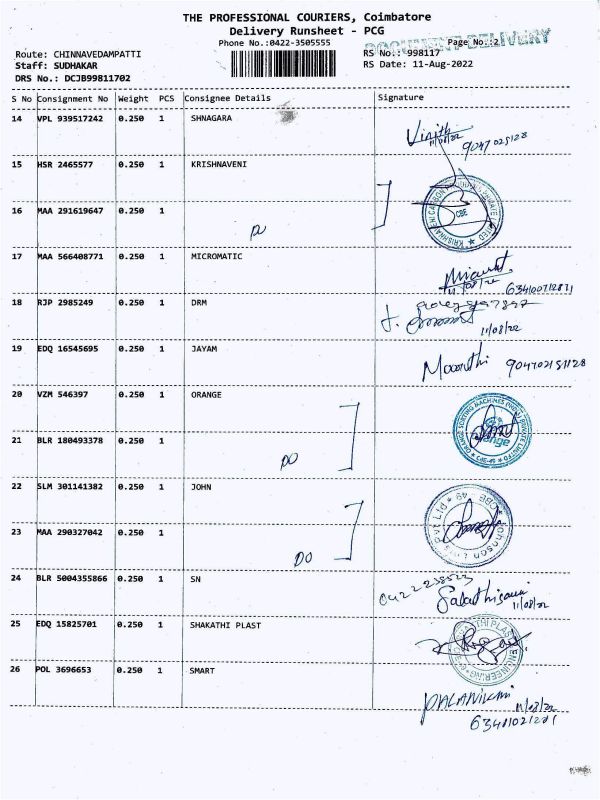 THE PROFESSIONAL COURIERS, Coimbatore
Delivery Runsheet - PCG
Phone No.:0422-3505555
DOCUMENT DELIVERY
Page No.:2
Route: CHINNAVEDAMPATTI
RS No.: 998117
Staff: SUDHAKAR
RS Date: 11-Aug-2022
DRS No.: DCJB99811702
S No Consignment No Weight PCS Consignee Details Signature
14 VPL 939517242 0.250 1 SHNAGARA
11/08/22 9047025128
15 HSR 2465577 0.250 1 KRISHNAVENI
16 MAA 291619647 0.250 1
CBE
DO
17 MAA 566408771 0.250 1 MICROMATIC
11/08/22
18 RJP 2985249 0.250 1 DRM
11/08/22
19 EDQ 16545695 0.250 1 JAYAM
20 VZM 546397 0.250 1 ORANGE
ORANGE SORTING MACHINES (INDIA) PRIVATE LIMITED
21 BLR 180493378 0.250 1
DO
22 SLM 301141382 0.250 1 JOHN
23 MAA 290327042 0.250 1
DO
24 BLR 5004355866 0.250 1 SN
11/08/22
25 EDQ 15825701 0.250 1 SHAKATHI PLAST
26 POL 3696653 0.250 1 SMART
11/08/22